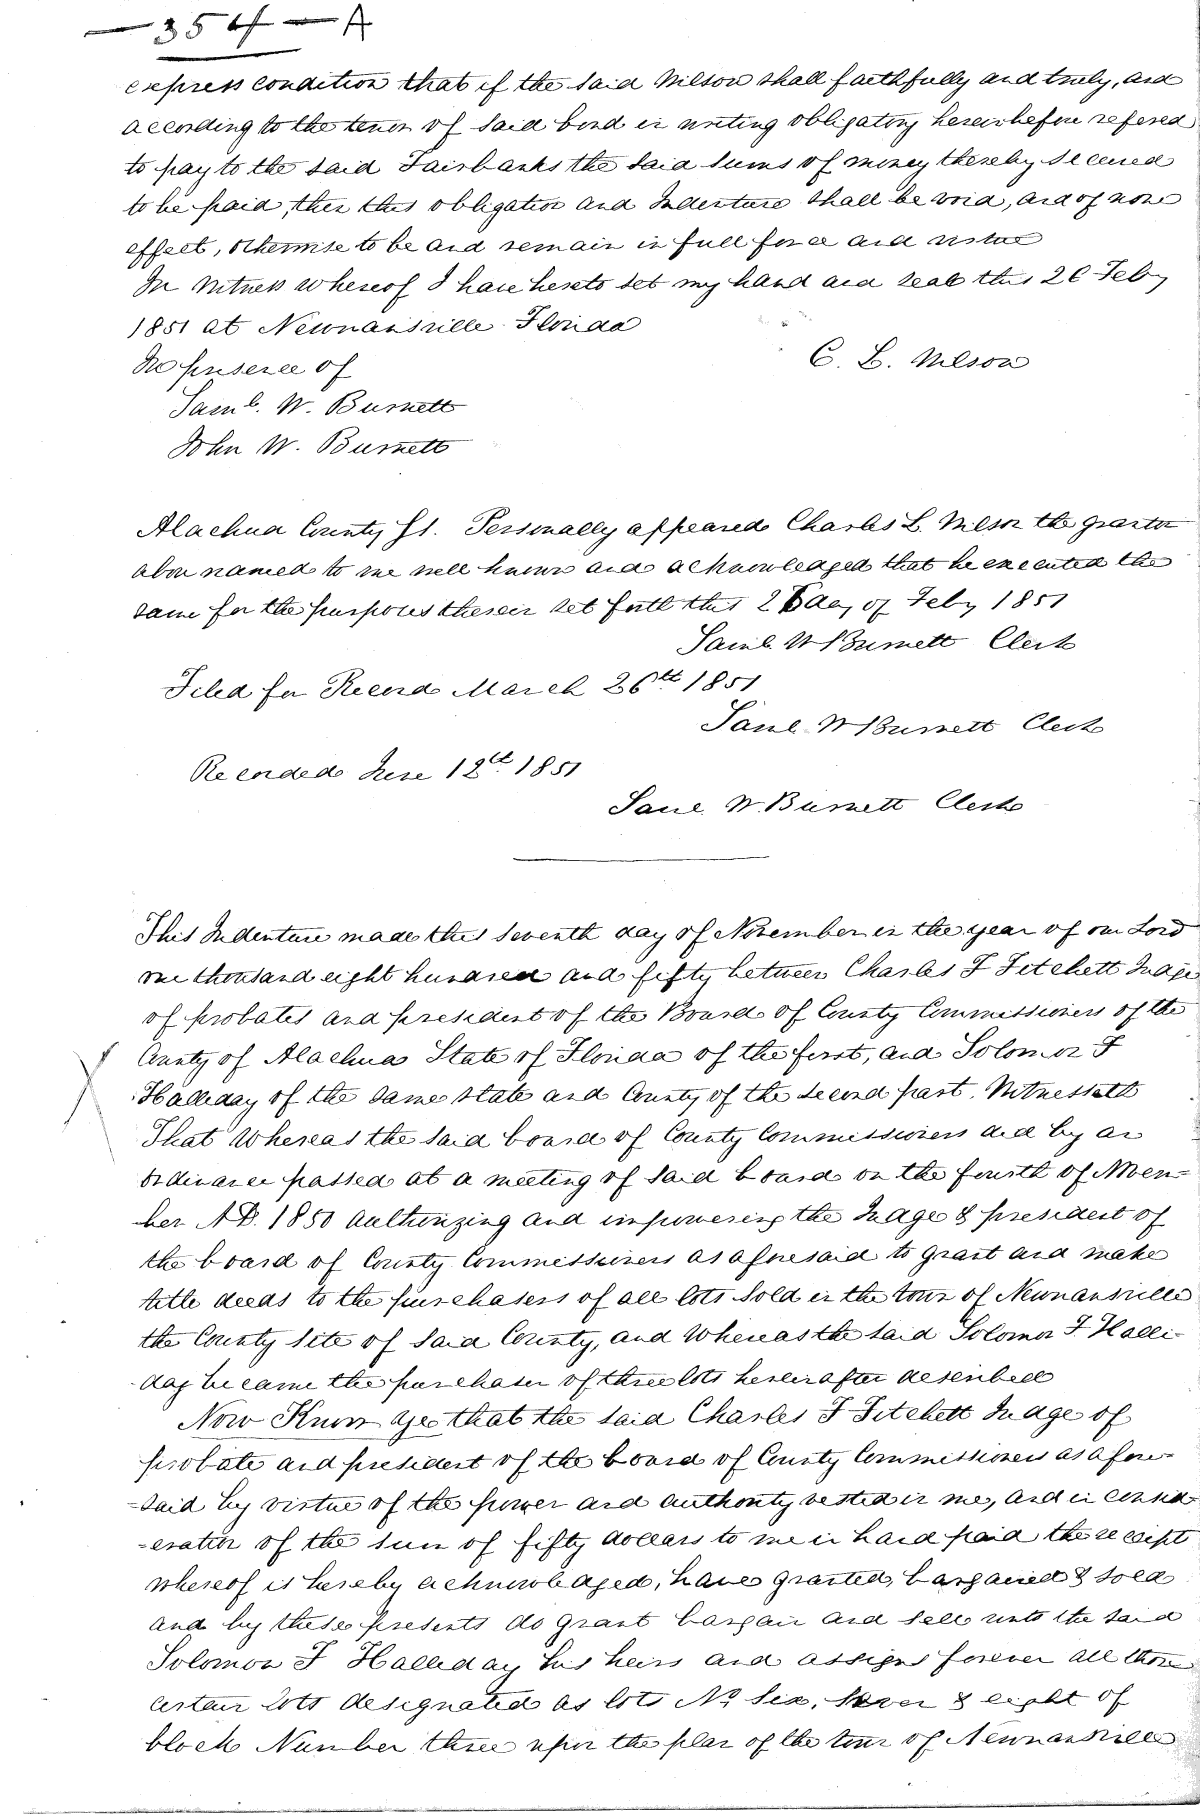 —354—A
express condition that if the said Wilson shall faithfully and truly, and
according to the tenor of said bond or writing obligatory hereinbefore refered
to pay to the said Fairbanks the said sums of money thereby secured
to be paid, then this obligation and Indenture shall be void, and of none
effect, otherwise to be and remain in full force and virtue
In Witness whereof I have hereto set my hand and seal this 26 Feby
1851 at Newnansville Florida
In presence of
C. L. Wilson
Saml. W. Burnett
John W. Burnett
Alachua County ss. Personally appeared Charles L. Wilson the grantor
above named to me well known and acknowledged that he executed the
same for the purposes therein set forth this 26 day of Feby 1851
Saml W Burnett Clerk
Filed for Record March 26th 1851
Saml W Burnett Clerk
Recorded June 12th 1851
Saml W. Burnett Clerk
This Indenture made this seventh day of November in the year of our Lord
one thousand eight hundred and fifty between Charles F Fitchett Judge
of probates and president of the Board of County Commissioners of the
County of Alachua State of Florida of the first, and Solomon F
Halliday of the same state and County of the second part. Witnesseth
That Whereas the said board of County Commissioners did by an
ordinance passed at a meeting of said board on the fourth of Novem=
-ber A.D. 1850 authorizing and impowering the Judge & president of
the board of County Commissioners as aforesaid to grant and make
title deeds to the purchasers of all lots sold in the town of Newnansville
the County Site of said County, and Whereas the said Solomon F. Halli-
day became the purchaser of three lots hereinafter described
Now Know Ye that the said Charles F Fitchett Judge of
probate and president of the board of County Commissioners as afore-
-said by virtue of the power and authority vested in me, and in consid-
-eration of the sum of fifty dollars to me in hand paid the receipt
whereof is hereby acknowledged, have granted, bargained & sold
and by these presents do grant bargain and sell unto the said
Solomon F Halliday his heirs and assigns forever all those
certain lots designated as lots No. Six, Seven & eight of
block Number three upon the plan of the town of Newnansville